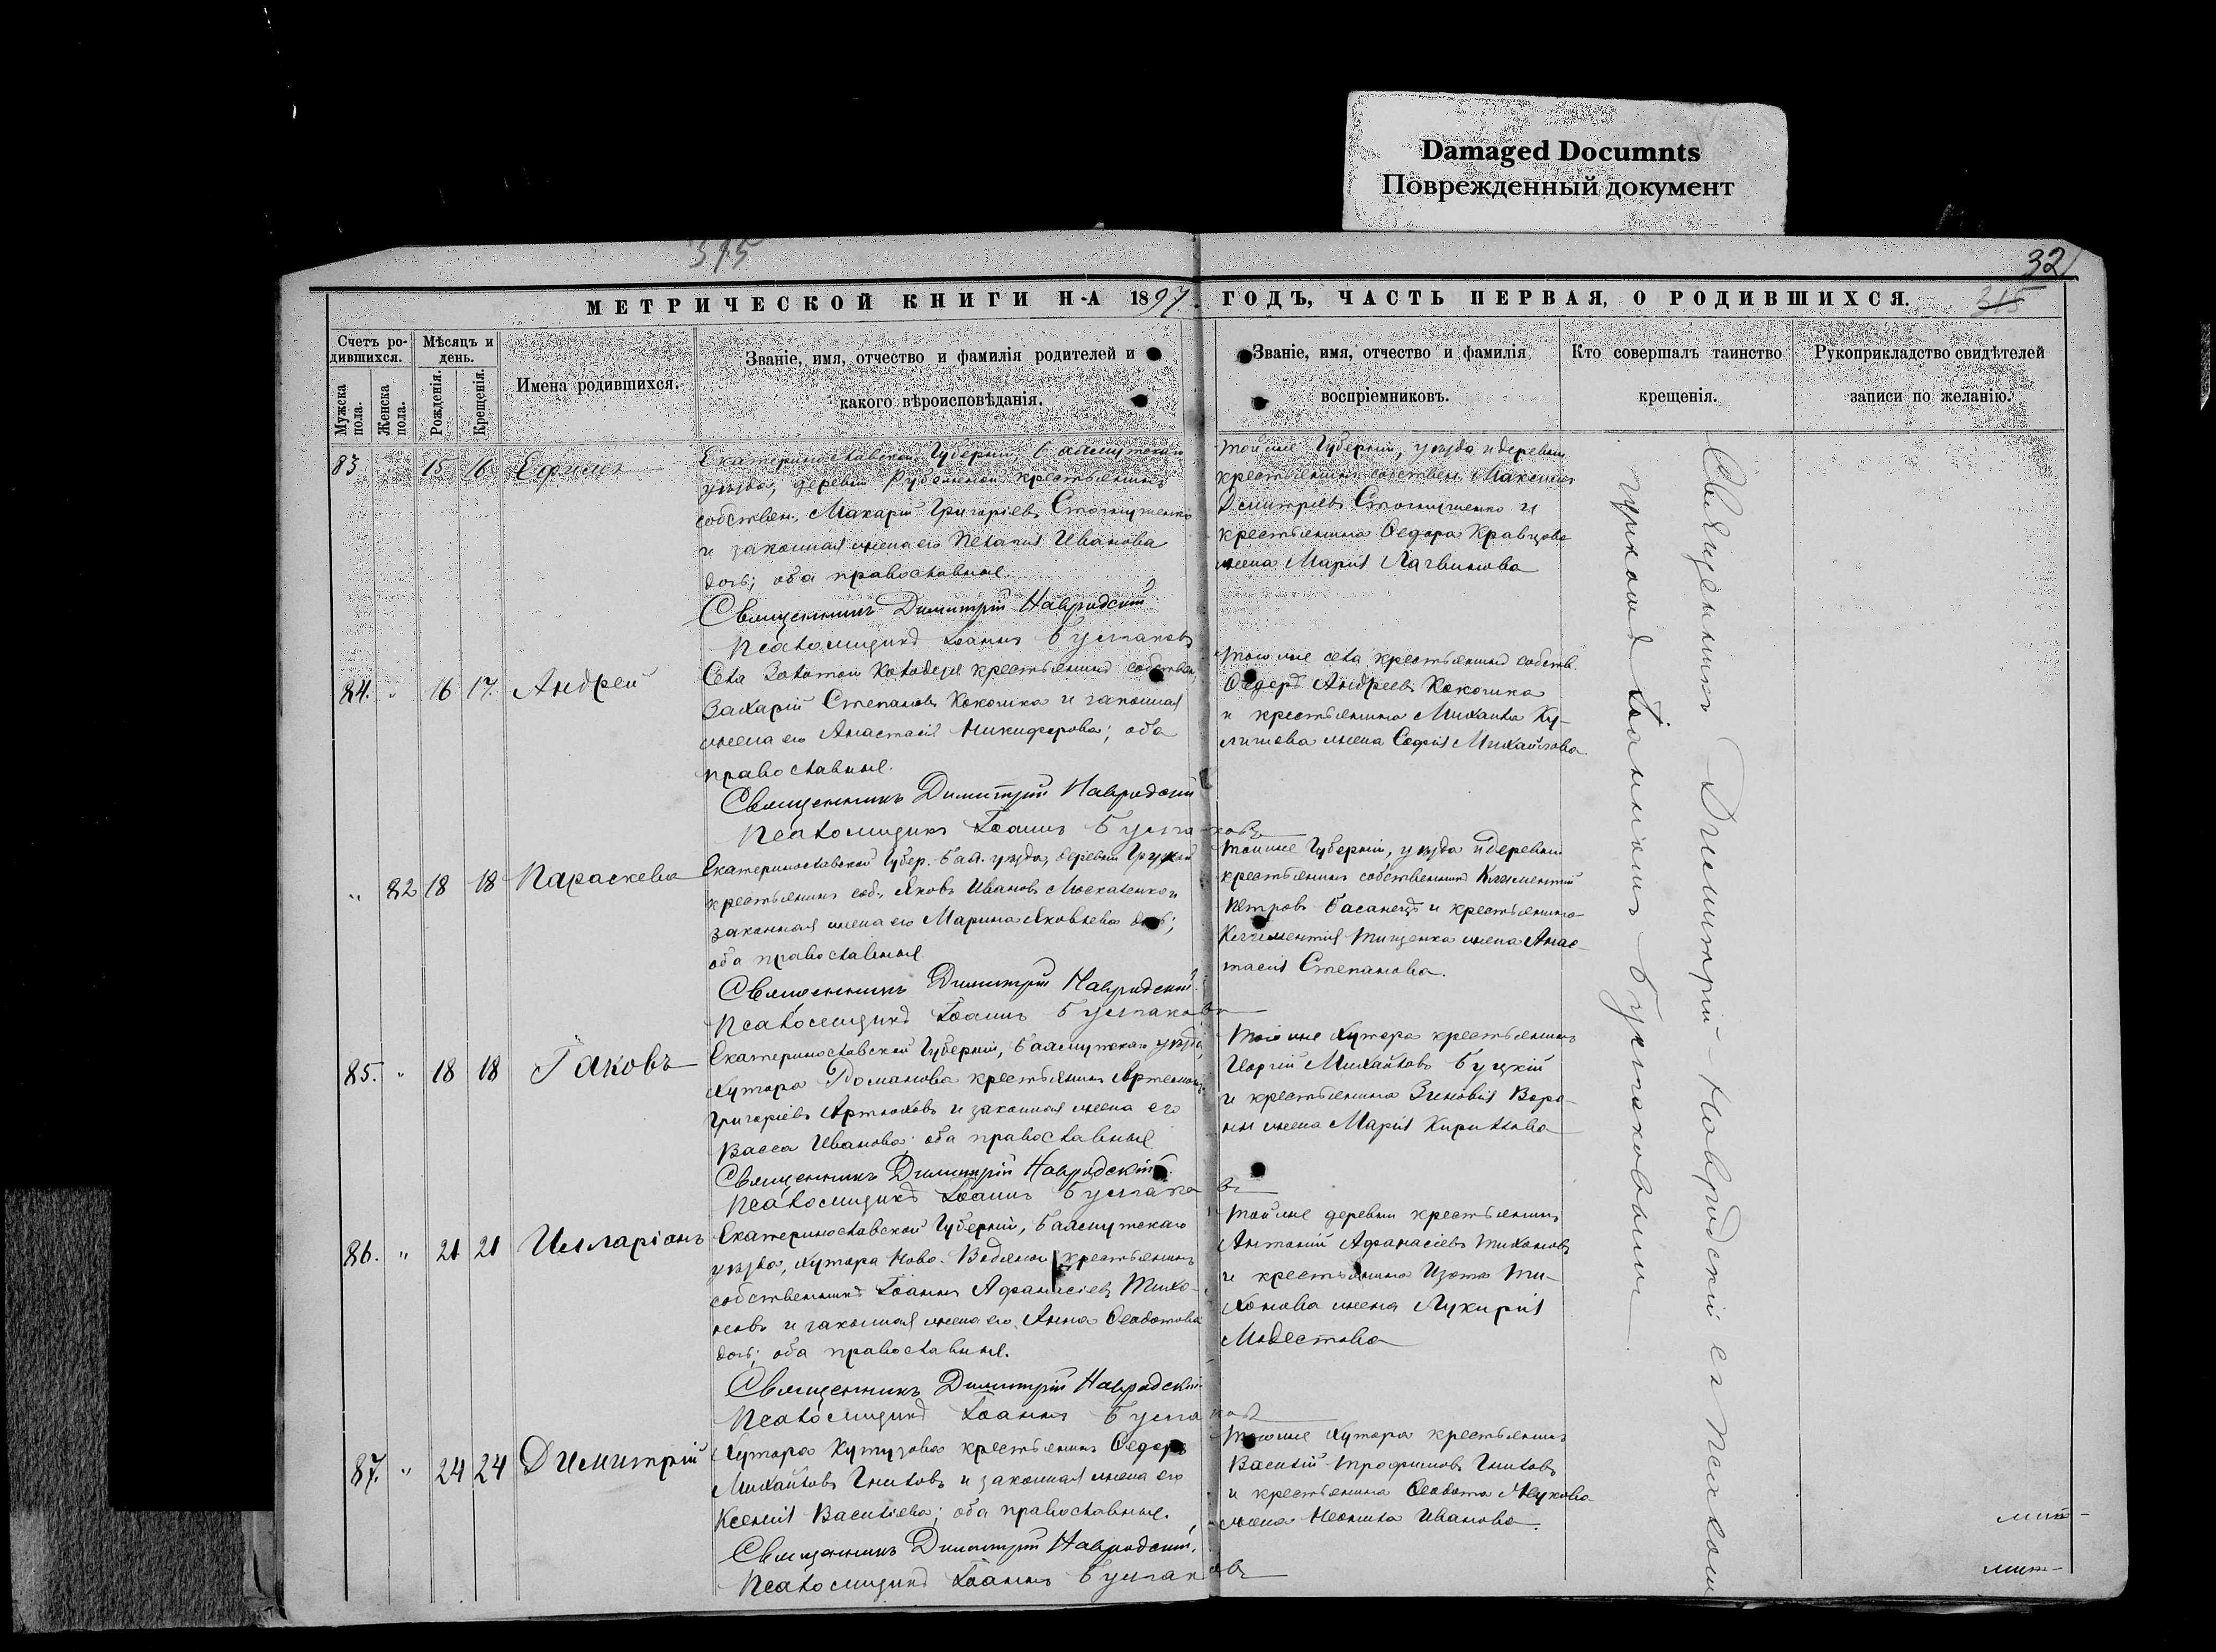 Damaged Documnts
Поврежденный документ
315
32
МЕТРИЧЕСКОЙ КНИГИ НА 1897 ГОДЪ, ЧАСТЬ ПЕРВАЯ, О РОДИВШИХСЯ.
315
Счетъ ро-
дившихся.
Мужска
пола.
Женска
пола.
Мѣсяцъ и
день.
Рожденія.
Крещенія.
Имена родившихся.
Званіе, имя, отчество и фамилія родителей и
какого вѣроисповѣданія.
Званіе, имя, отчество и фамилія
воспріемниковъ.
Кто совершалъ таинство
крещенія.
Рукоприкладство свидѣтелей
записи по желанію.
83 15 16 Ефимъ
Екатеринославской Губерніи, Бахмутскаго
уѣзда, деревни крестьянинъ
собствен., Макарій Григоріевъ
и законная жена его Пелагія Иванова
дочь; оба православные.
Священникъ Димитрій Навродскій
Псаломщикъ Іоаннъ Булгаковъ
Той же Губерніи, уѣзда и деревни
крестьянинъ собствен. Максимъ
Дмитріевъ и
крестьянина Ѳедора Кравцова
жена Марія
84. " 16 17. Андрей
Села Золотой Колодезь крестьянинъ собствен.
Захарій Степановъ Кокошка и законная
жена его Анастасія Никифорова; оба
православные.
Священникъ Димитрій Навродскій
Псаломщикъ Іоаннъ Булгаковъ
Того же села крестьянинъ собств.
Ѳедоръ Андреевъ Кокошка
и крестьянина Михаила Ку-
жена Софія Михайлова.
" 82 18 18 Параскева
Екатеринославской Губер. Бах. уѣзда, деревни Грузкой
крестьянинъ соб., Яковъ Ивановъ Москаленко и
законная жена его Марина Яковлева дочь;
оба православные
Священникъ Димитрій Навродскій.
Псаломщикъ Іоаннъ Булгаковъ
Той же Губерніи, уѣзда и деревни
крестьянинъ собственникъ Климентій
Петровъ Басанецъ и крестьянина
Климентія Тищенка жена Анас-
тасія Степанова.
85. " 18 18 Іаковъ
Екатеринославской Губерніи, Бахмутскаго уѣзда,
Хутора Романова крестьянинъ Артемонъ
Григоріевъ Артюховъ и законная жена его
Васса Иванова; оба православные
Священникъ Димитрій Навродскій.
Псаломщикъ Іоаннъ Булгаковъ
Того же Хутора крестьянинъ
Георгій Михайловъ Буцкій
и крестьянина Зиновія Воро-
ны жена Марія Кириллова
86. " 21 21 Илларіонъ
Екатеринославской Губерніи, Бахмутскаго
уѣзда, хутора Ново-Водяной крестьянинъ
собственникъ Іоаннъ Афанасіевъ Тихо-
новъ и законная жена его Анна Ѳедотова
дочь; оба православные.
Священникъ Димитрій Навродскій
Псаломщикъ Іоаннъ Булгаковъ
Той же деревни крестьянинъ
Антоній Афанасіевъ Тихоновъ
и крестьянина Изота Ти-
хонова жена Лукирія
Модестова
87. " 24 24 Димитрій
Хутора Кутузова крестьянинъ Ѳедоръ
Михайловъ Гниловъ и законная жена его
Ксенія Василіева; оба православные.
Священникъ Димитрій Навродскій.
Псаломщикъ Іоаннъ Булгаковъ
Того же Хутора крестьянинъ
Василій Трофимовъ Гниловъ
и крестьянина Ѳедота Жукова
жена Неонила Иванова.
Священникъ Димитрій Навродскій съ Псалом-
щикомъ Іоанномъ Булгаковымъ